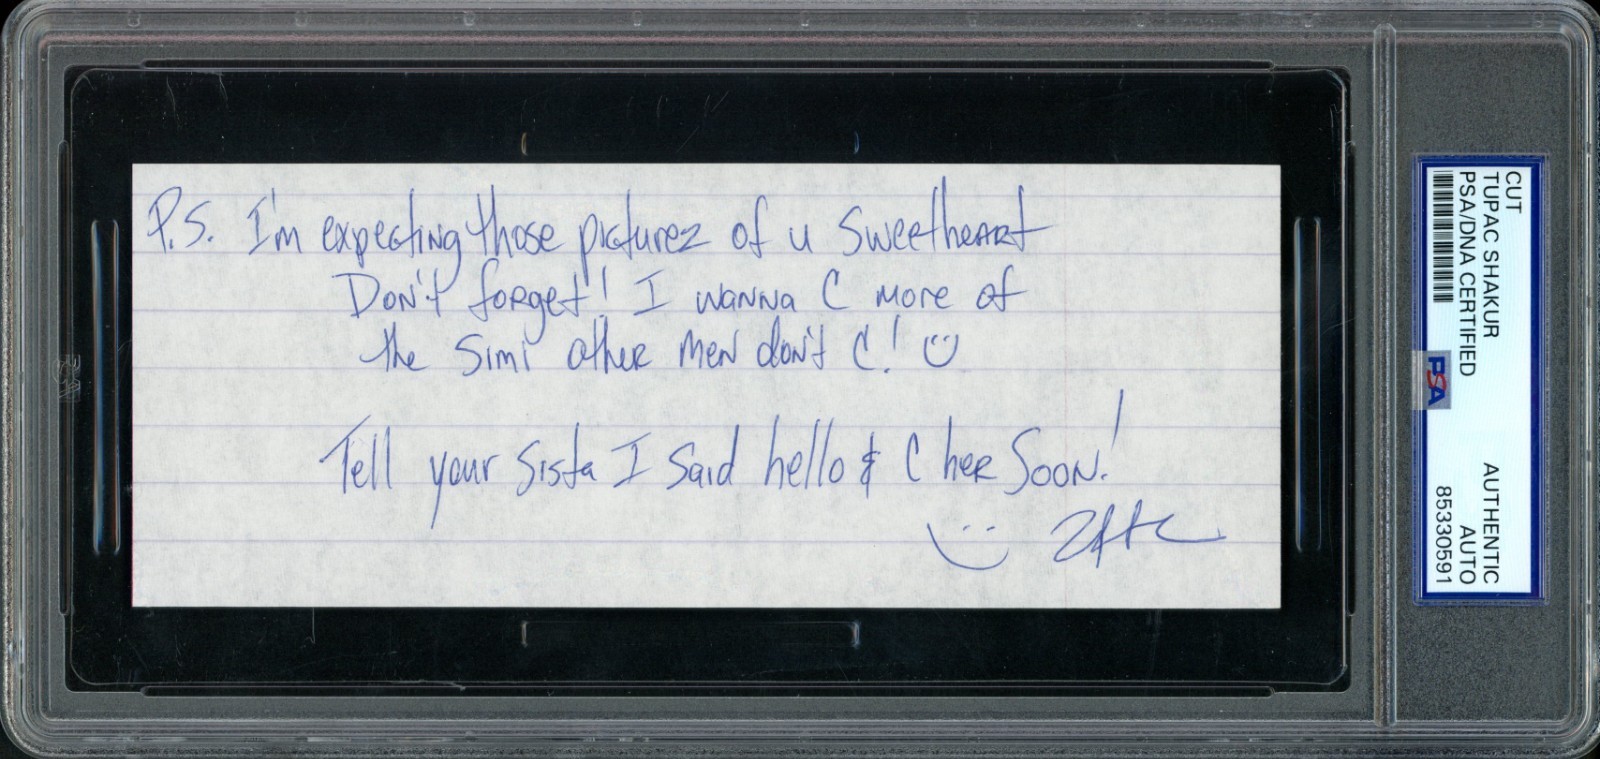 P.S. I'm expecting those picturez of u sweetheart
Don't forget! I wanna C more of
the Simi other men don't C!
Tell your Sista I said hello & C her soon!
CUT
TUPAC SHAKUR
PSA/DNA CERTIFIED
PSA
AUTHENTIC
AUTO
85330591